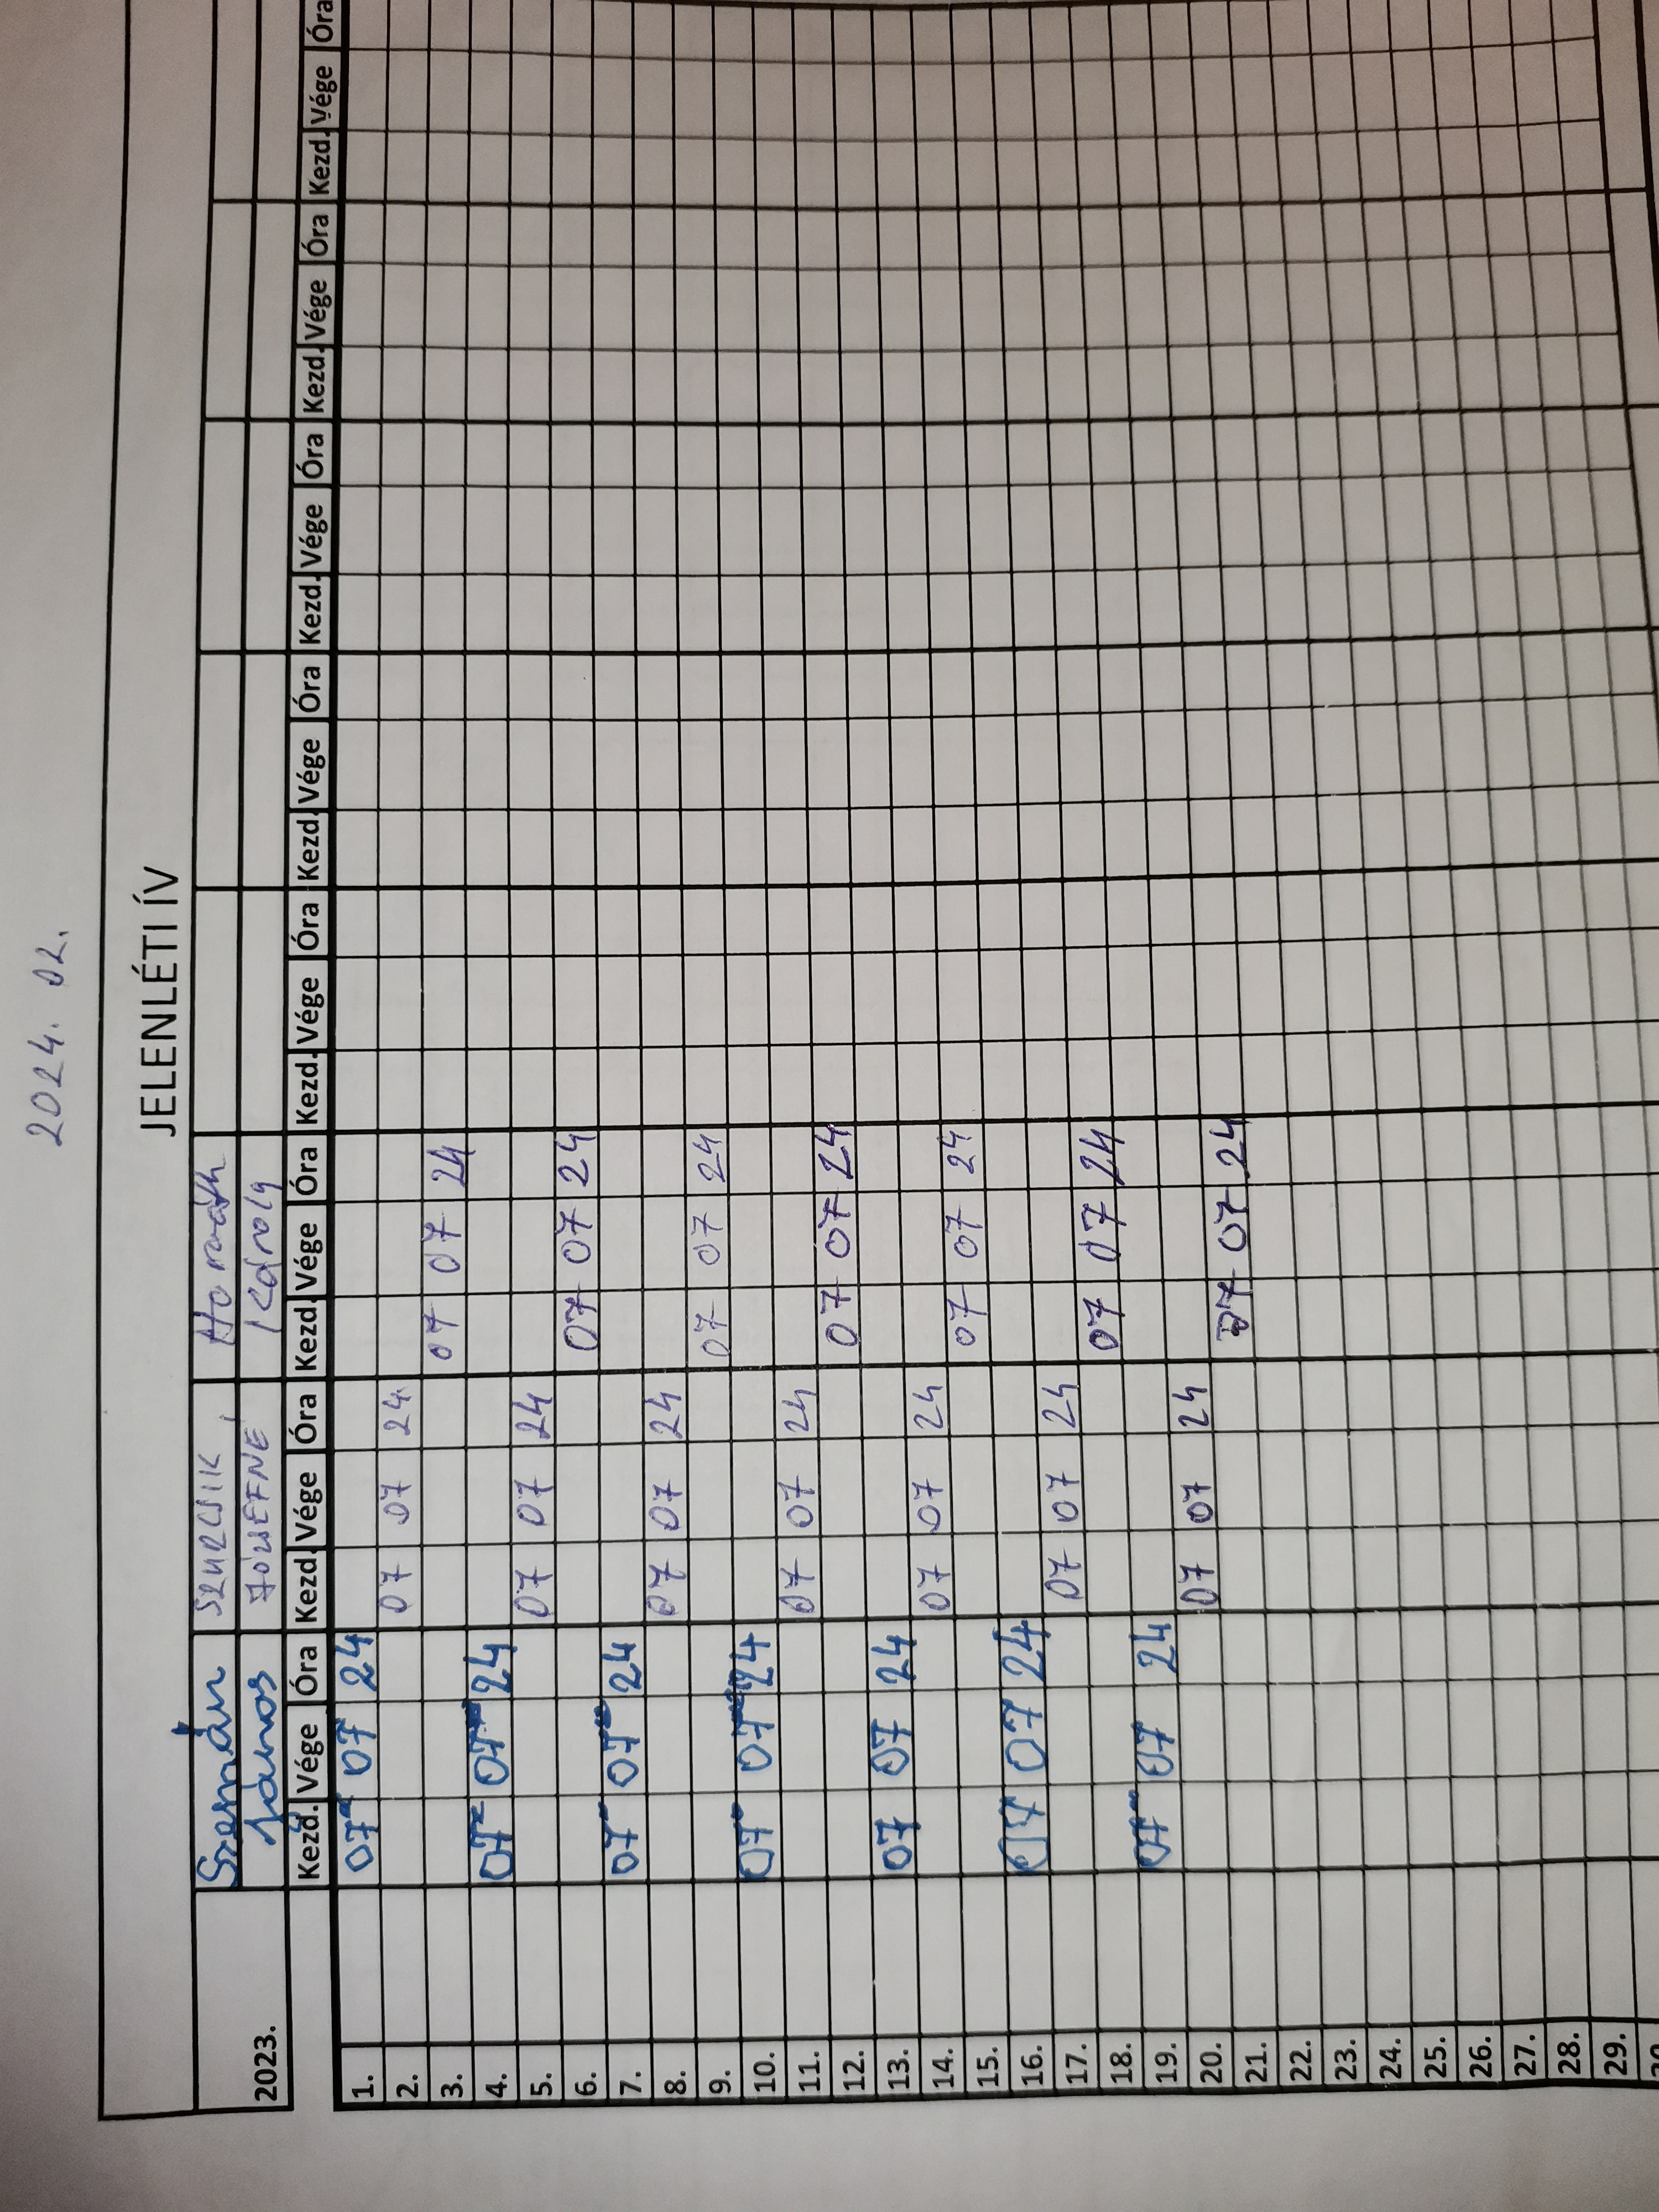 2024. 02.
JELENLÉTI ÍV
Szemán SZURCSIK Horváth
2023. János JÓZSEFNÉ Károly
Kezd. Vége Óra Kezd. Vége Óra Kezd. Vége Óra Kezd. Vége Óra Kezd. Vége Óra Kezd. Vége Óra Kezd. Vége Óra Kezd. Vége Óra
1. 07 07 24
2. 07 07 24
3. 07 07 24
4. 07 07 24
5. 07 07 24
6. 07 07 24
7. 07 07 24
8. 07 07 24
9. 07 07 24
10. 07 07 24
11. 07 07 24
12. 07 07 24
13. 07 07 24
14. 07 07 24
15. 07 07 24
16. 07 07 24
17. 07 07 24
18. 07 07 24
19. 07 07 24
20. 07 07 24
21. 07 07 24
22.
23.
24.
25.
26.
27.
28.
29.